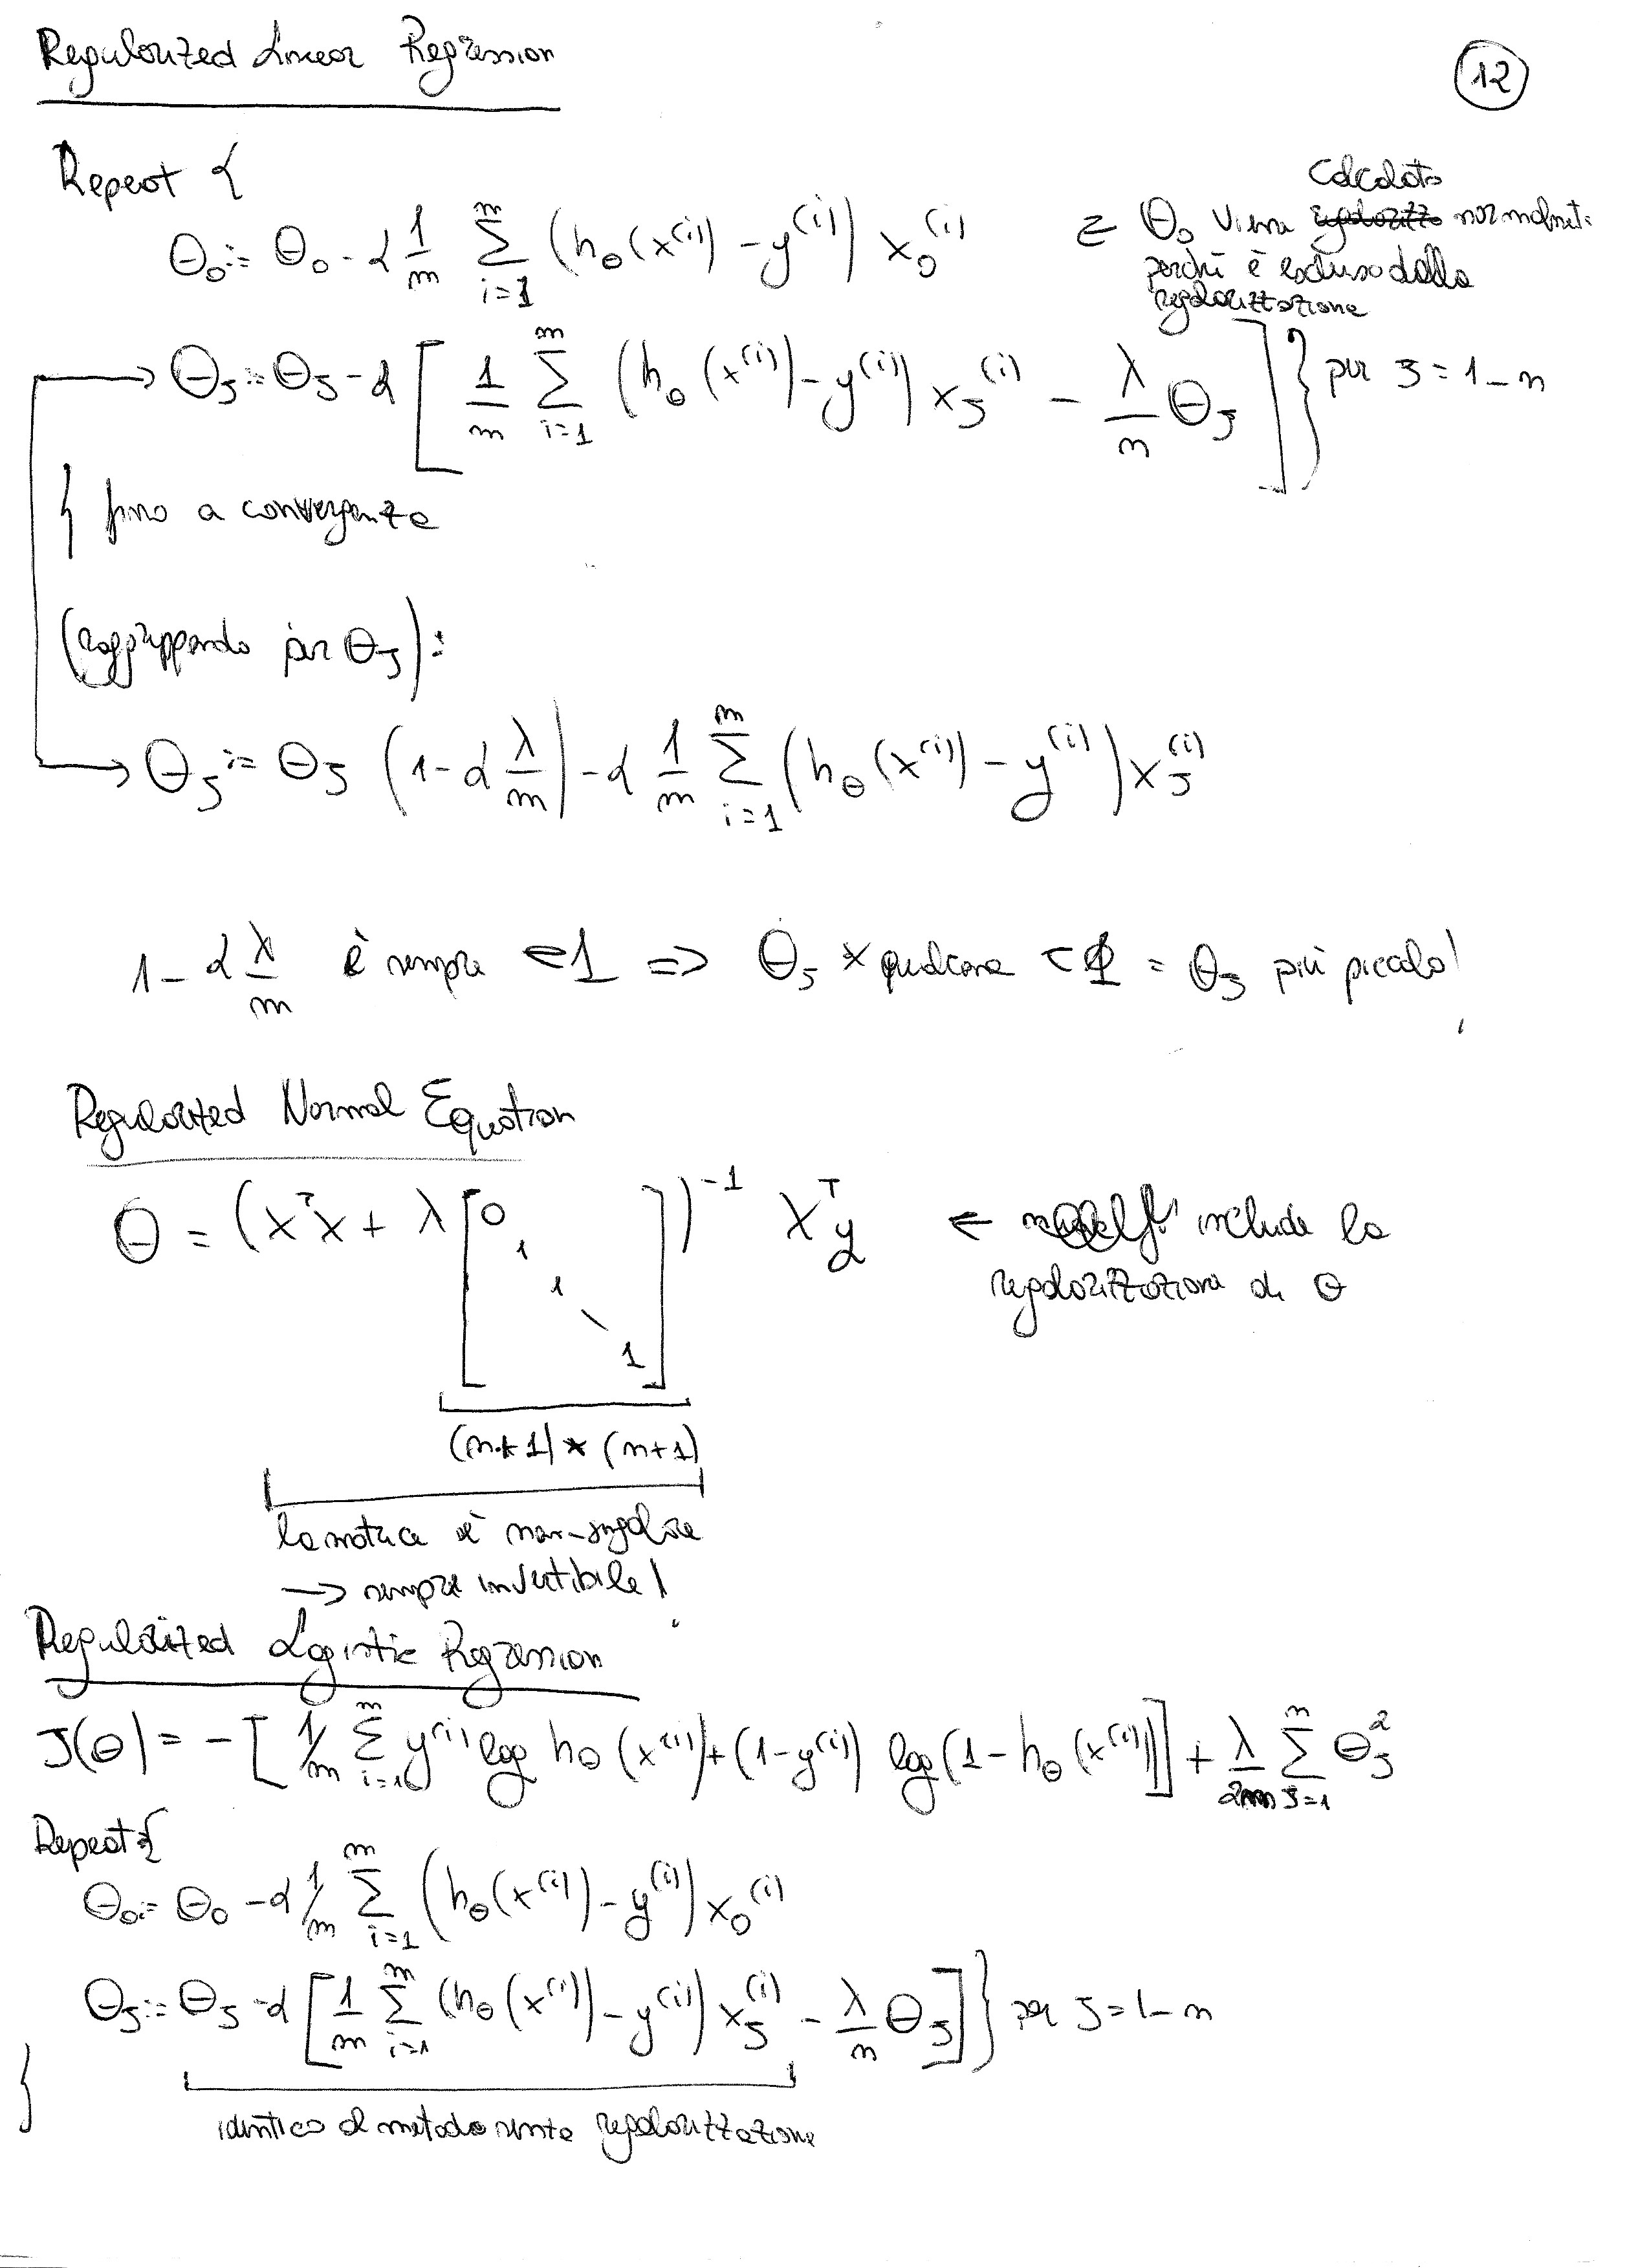 Regularized Linear Regression
12
Repeat {
Calcolato
θ₀ := θ₀ - α 1/m Σ_{i=1}^{m} (h_θ(x^(i)) - y^(i)) x₀^(i) ⇐ θ₀ viene normalmente
perché è escluso dalla
regolarizzazione
→ θ_J := θ_J - α [ 1/m Σ_{i=1}^{m} (h_θ(x^(i)) - y^(i)) x_J^(i) - λ/m θ_J ] } per J = 1 - n
} fino a convergenza
(raggruppando per θ_J):
→ θ_J := θ_J (1 - α λ/m) - α 1/m Σ_{i=1}^{m} (h_θ(x^(i)) - y^(i)) x_J^(i)
1 - α λ/m è sempre < 1 ⇒ θ_J × qualcosa < 1 = θ_J più piccolo!
Regularized Normal Equation
θ = (X^T X + λ [0 1 1 \ 1])^-1 X^T y ← include la
regolarizzazione di θ
(n+1) * (n+1)
la matrice è non-singolare
→ sempre invertibile!
Regularized Logistic Regression
J(θ) = - [ 1/m Σ_{i=1}^{m} y^(i) log h_θ(x^(i)) + (1 - y^(i)) log(1 - h_θ(x^(i))] + λ/2m Σ_{J=1}^{n} θ_J^2
Repeat {
θ₀ := θ₀ - α 1/m Σ_{i=1}^{m} (h_θ(x^(i)) - y^(i)) x₀^(i)
θ_J := θ_J - α [ 1/m Σ_{i=1}^{m} (h_θ(x^(i)) - y^(i)) x_J^(i) - λ/m θ_J ] } per J = 1 - n
}
identico al metodo senza regolarizzazione